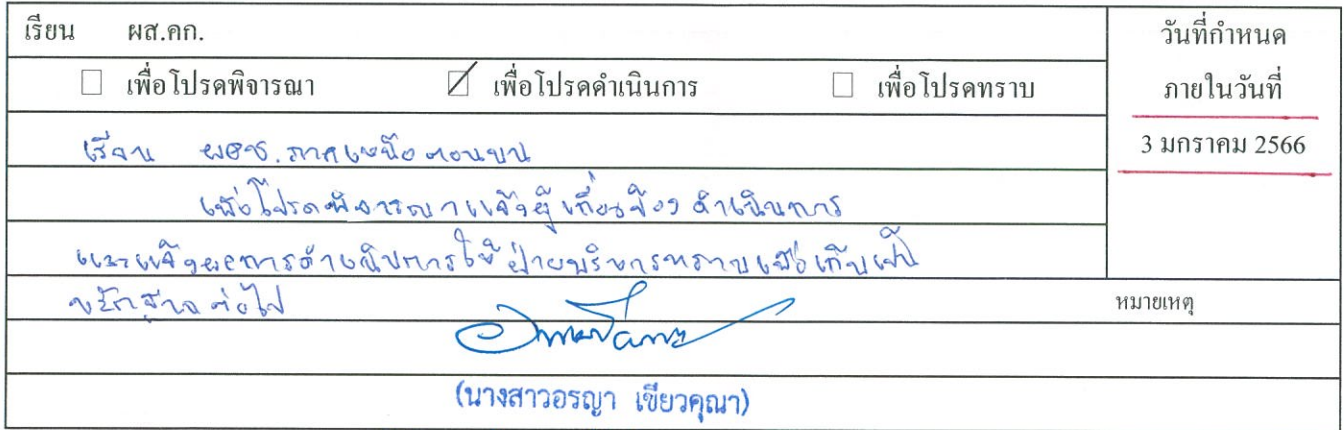 เรียน ผส.คก.
วันที่กำหนด
☐ เพื่อโปรดพิจารณา ☑ เพื่อโปรดดำเนินการ ☐ เพื่อโปรดทราบ
ภายในวันที่
3 มกราคม 2566
เรียน ผอช.ภาคเหนือตอนบน
เพื่อโปรดพิจารณาแจ้งผู้เกี่ยวข้องดำเนินการ
และแจ้งผลการดำเนินการให้ฝ่ายบริหารทราบเพื่อเก็บเป็น
หลักฐานต่อไป
หมายเหตุ
(นางสาวอรญา เขียวคุณา)